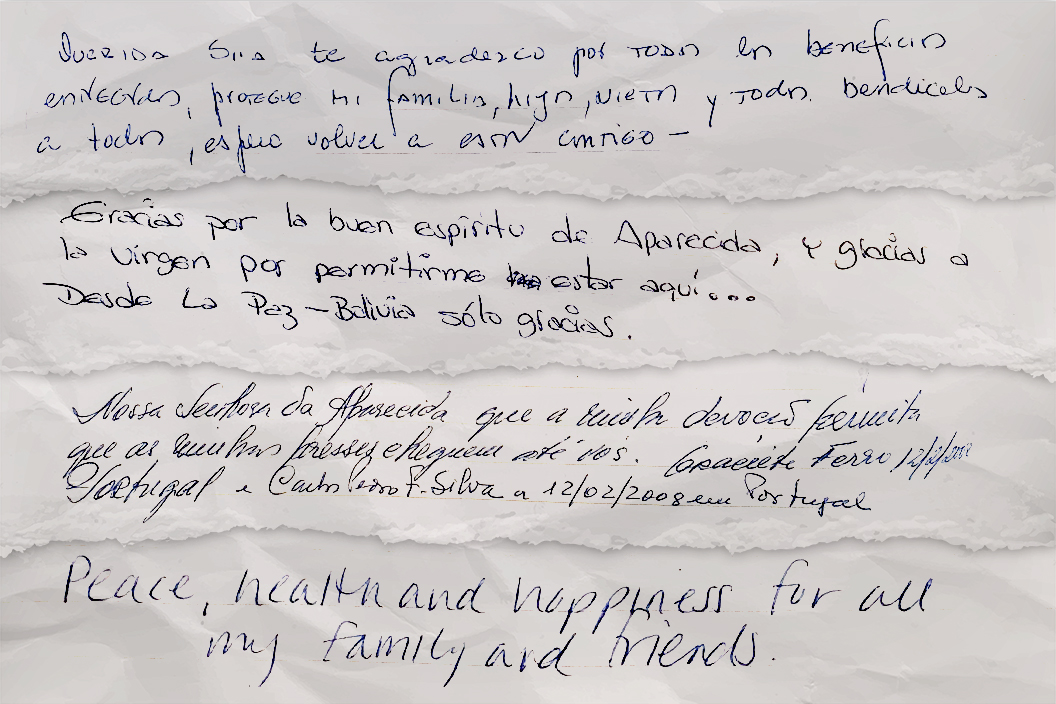 Querida Sra te agradesco por todos los beneficios
entregados, protegue mi familia, hijos, nietos y todos. bendiceles
a todos, espero volver a estar contigo -
Gracias por la buen espíritu de Aparecida, y gracias a
la virgen por permitirme estar aquí...
Desde La Paz - Bolivia sólo gracias.
Nossa Senhora da Aparecida que a minha devoção permita
que as minhas presses cheguem até vós. Ferro 12/2/2008
Portugal e F. Silva a 12/02/2008 em Portugal
Peace, health and happiness for all
my family and friends.